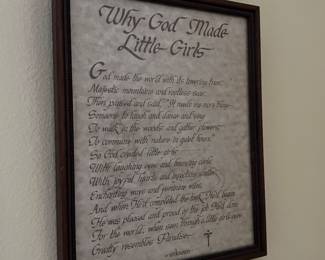 Why God Made
Little Girls
God made the world with its towering trees
Majestic mountains and restless seas
Then paused and said, "It needs one more thing~
Someone to laugh and dance and sing
To walk in the woods and gather flowers
To commune with nature in quiet hours."
So God created little girls
With laughing eyes and bouncing curls
With joyful hearts and infectious smiles
Enchanting ways and feminine wiles
And when He'd completed the task He'd begun
He was pleased and proud of the job He'd done
For the world, when seen through a little girl's eyes
Greatly resembles Paradise~